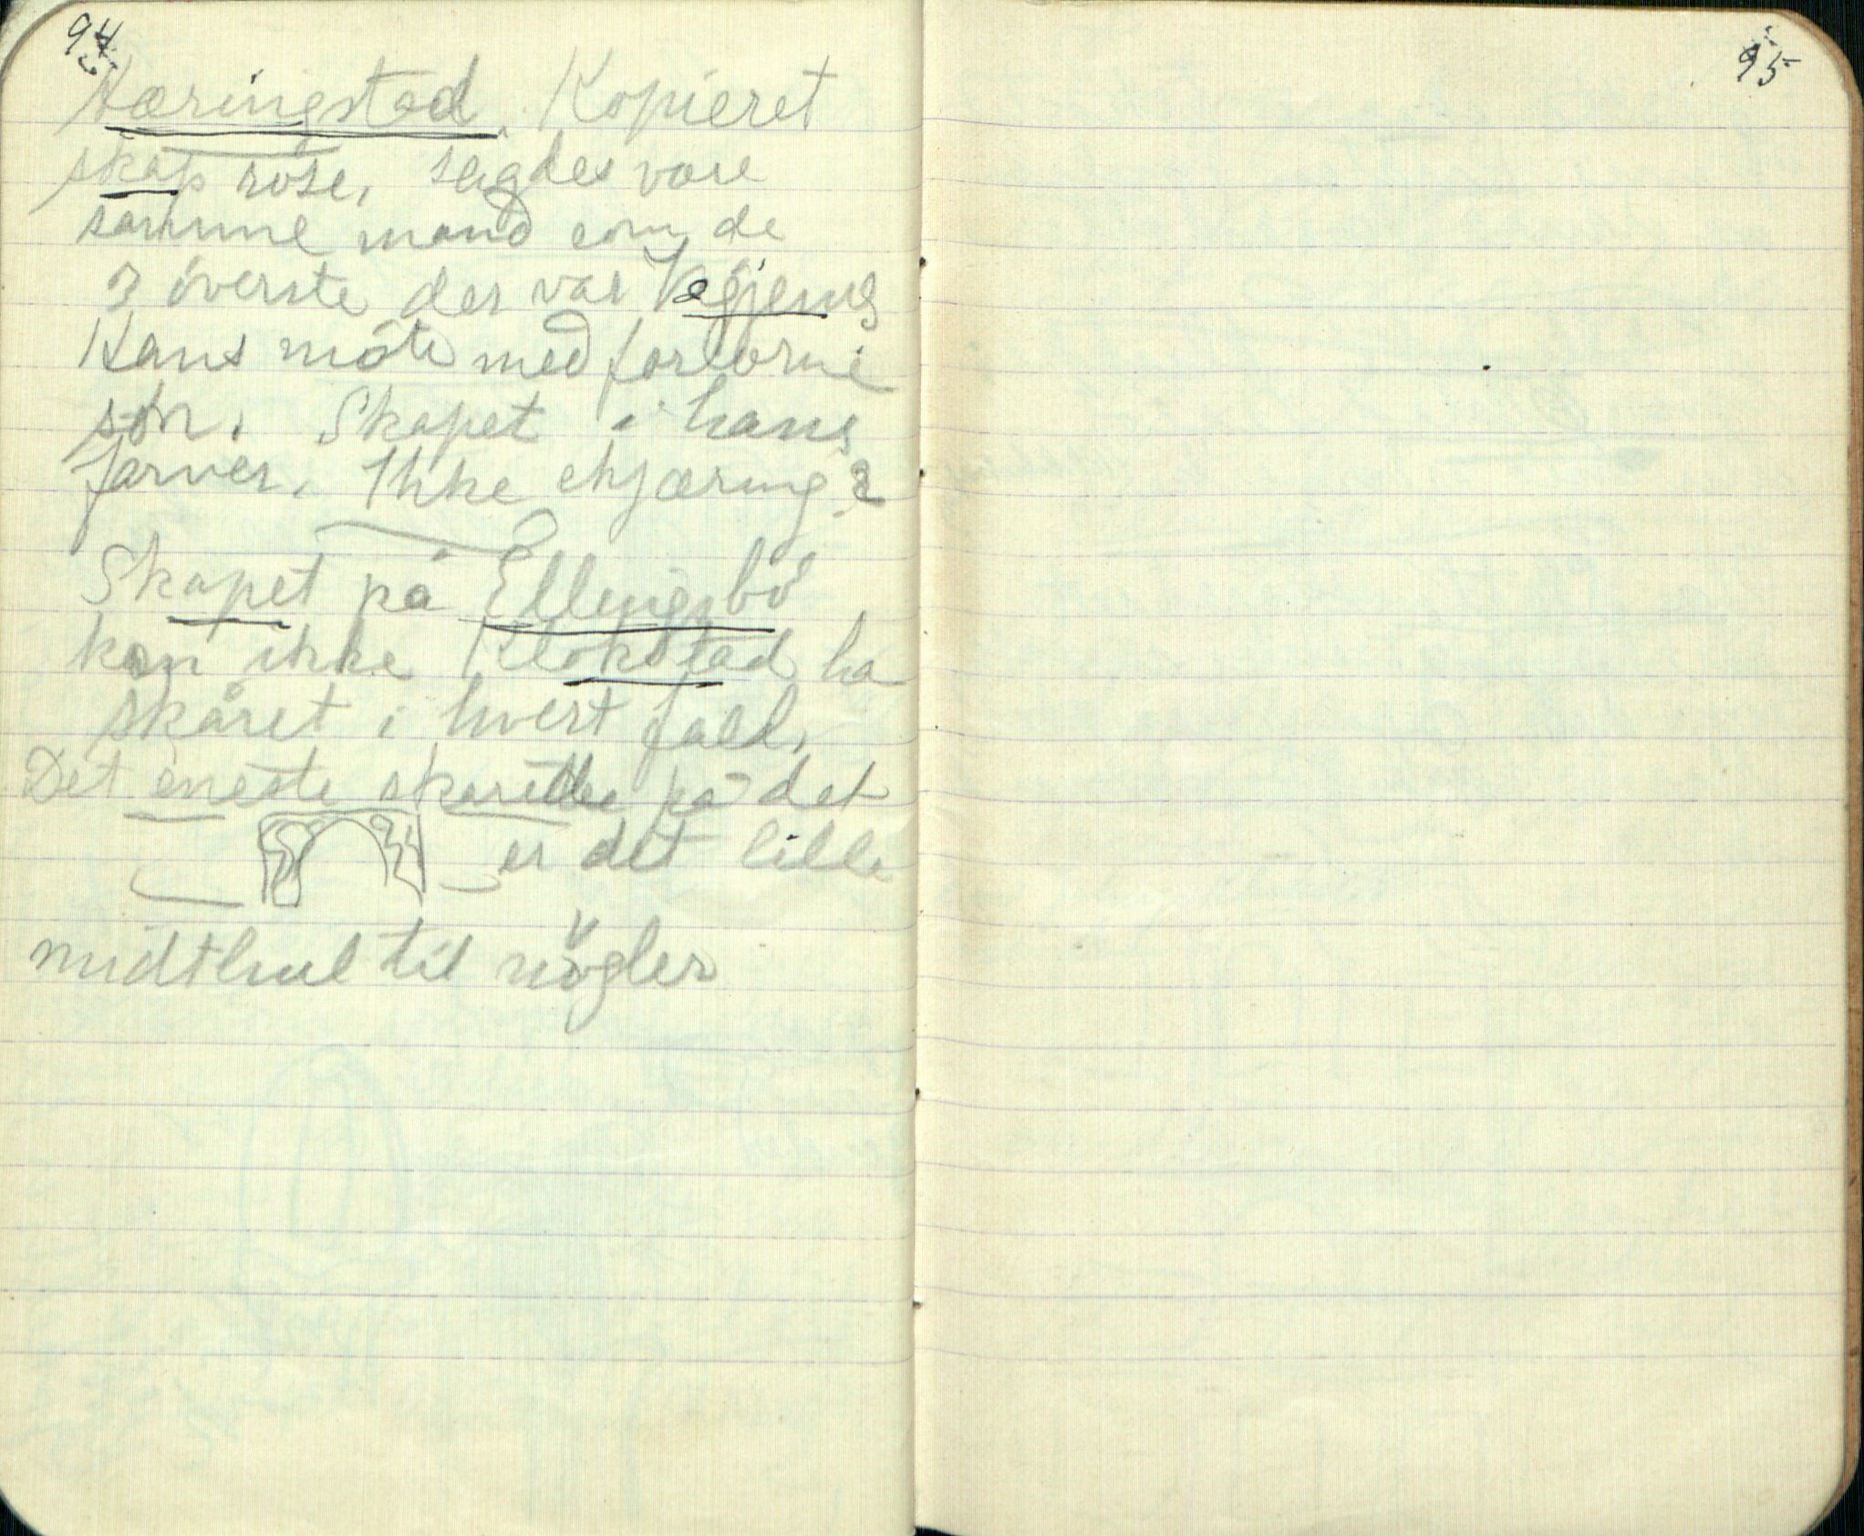 94
Hæringstad. Kopieret
skap rose, sagdes vare
samme mand som de
3 överste der var Vegjems
Hans möte med forlorne
sön. Skapet i hans
farver. Ikke skjæring?
Skapet på Ellingsbö
kan ikke Klokstad ha
skåret i hvert fald.
Det eneste skaret på det
er det lille
midthul til nögler
95